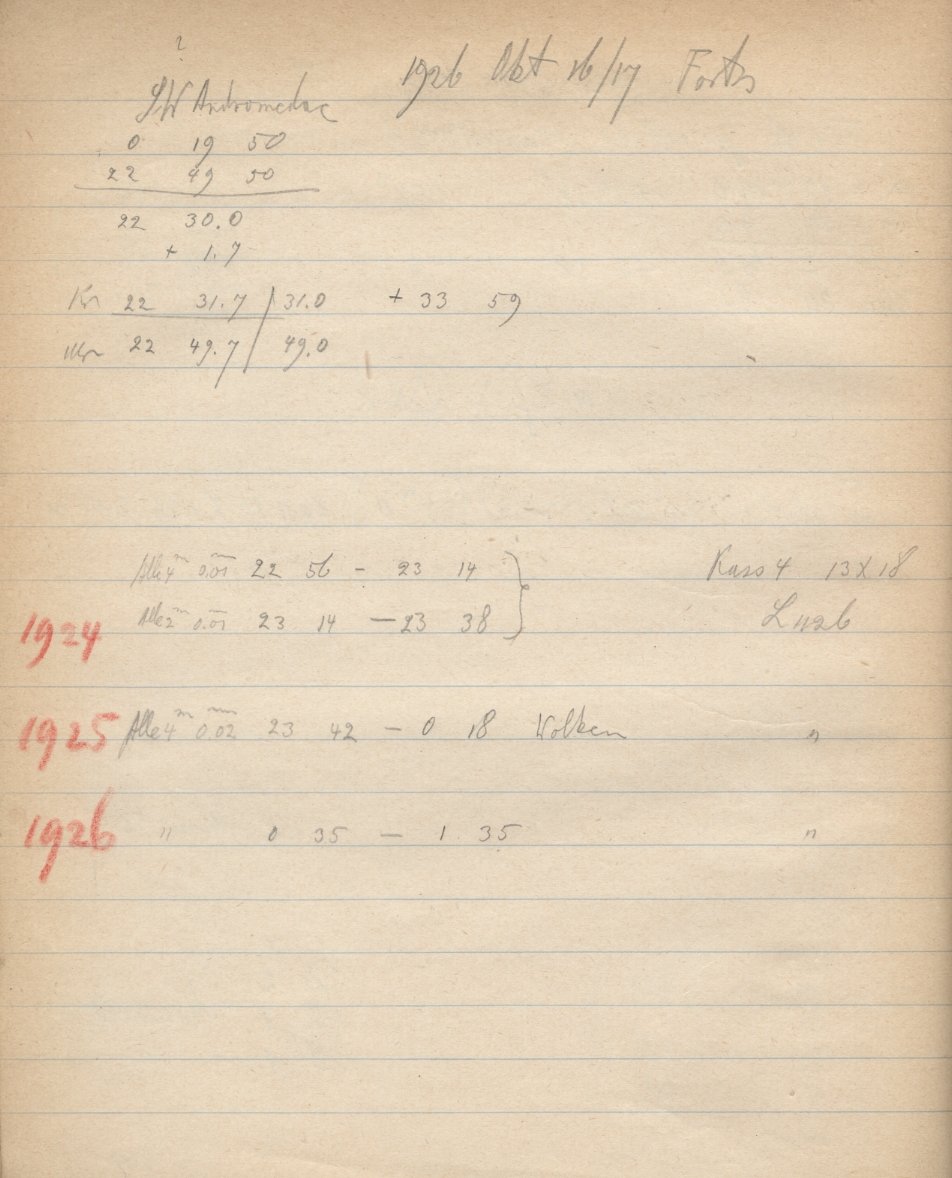 ?
1926 Okt 16/17 Forts
SW Andromedae
0 19 50
22 49 50
22 30.0
+ 1.7
Kr 22 31.7 | 31.0 + 33 59
22 49.7 | 49.0
Alle 4m 0.01mm 22 56 - 23 14 } Kass 4 13 x 18
Alle 2m 0.01mm 23 14 - 23 38
1924
1925 Alle 4m 0.02mm 23 42 - 0 18 Wolken "
1926 " 0 35 - 1 35 "